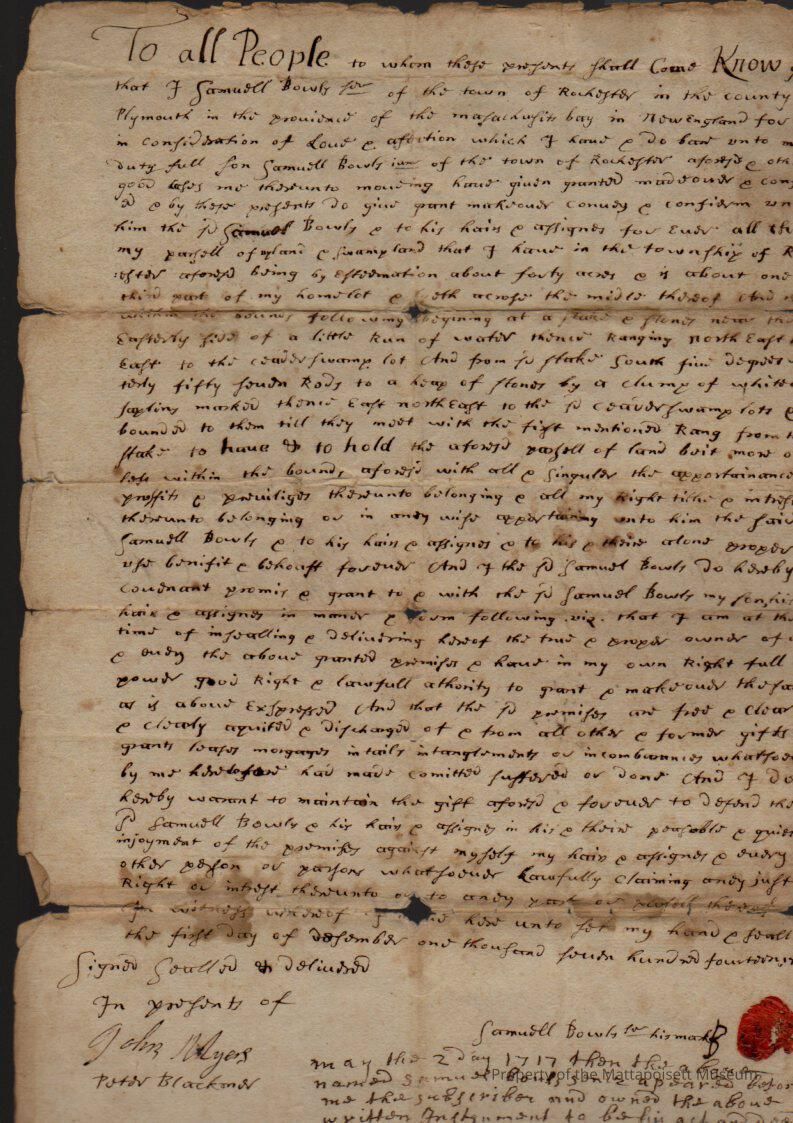 To all People to whom these presents shall Come Know
that I Samuell Bowls senr of the town of Rochester in the county
Plymouth in the provience of the masachusits bay in Newengland for
in consideration of Love & afection which I have & do bare unto m
duty full son Samuell Bowls iunr of the town of Rochester aforesd & oth
good cases me thereunto moveing have given granted madeover & con
ed & by these presents do give grant makeover convey & confierm un
him the sd Samuel Bowls & to his hairs & assignes for Ever all th
my parsell of upland & swampland that I have in the township of R
ester aforesd being by Esteemation about forty acres & is about one
third part of my homelot & lyeth acrose the midle thereof And
within the bounds following begining at a stake & stones near the
Easterly side of a little Run of water thence Ranging north East
East to the ceader swamp lot And from sd stake South five degrees
terly fifty seven Rods to a heap of stones by a clump of white
saplins marked thence East northEast to the sd ceader swamp lots &
bounded to them till they meet with the first mentioned Rang from
stake to have & to hold the aforesd parsell of land beit more o
less within the bounds aforesd with all & singuler the apportainance
profits & previliges thereunto belonging & all my Right title & intrest
thereunto belonging or in aney wise appertaining unto him the said
Samuell Bowls & to his hairs & assignes & to his & theire alone proper
use benifit & behouff forever And I the sd Samuel Bowls do hereby
covenant promis & grant to & with the sd Samuel Bowls my son his
hairs & assignes in maner & form following viz. that I am at the
time of insealling & delivering hereof the true & proper owner of
& every the above granted premises & have in my own Right full
power good Right & lawfull athority to grant & makeover the sa
as is above Expressed And that the sd premises are free & clear
& clearly aquited & discharged of & from all other & former gifts
grants leases morgages intails intanglements or incombrances whatsoev
by me heretofore had made comitted suffered or done And I do
hereby warant to maintain the gift aforesd & forever to defend the
sd Samuell Bowls & his hairs & assignes in his & theire peasable & quiet
injoyment of the premises against myself my hairs & assignes & every
other person or parsons whatsoever Lawfully Claiming aney just
Right or intrest thereunto or to aney part or parsell thereof
In witness whereof I here unto set my hand & seall
the first day of desember one thousand seven hundred fourteen
Signed Sealled & delivered
In presents of
John Myers
Peter Blackmer
Samuell Bowls senr his mark B
may the 2 day 1717 then the above
named Samuel bouls senr apeared before
me the subscriber and owned the above
written Instrument to be his act and deed
Property of the Mattapoisett Museum